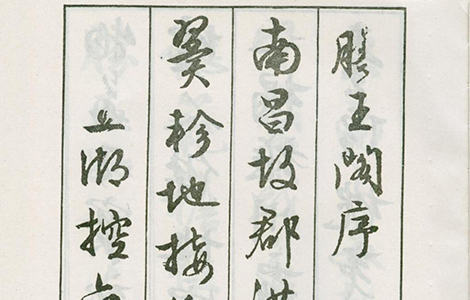 滕王閣序
南昌故郡洪
翼軫地接
五湖控